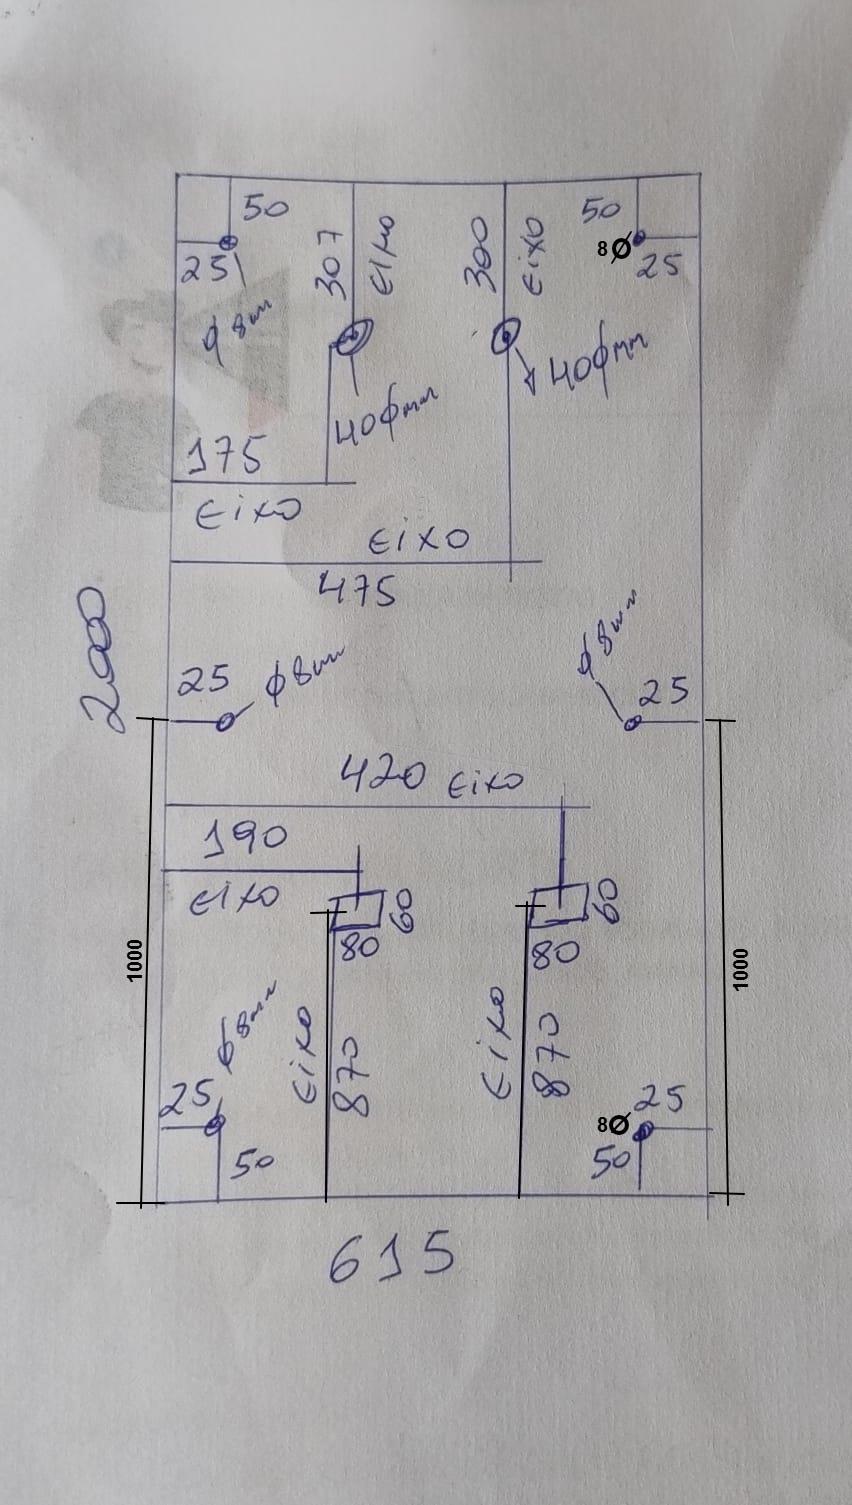 50
50
25
8Ø
25
307
Eixo
300
Eixo
ϕ 8mm
40ϕmm
40ϕmm
175
Eixo
Eixo
475
2000
25
ϕ8mm
ϕ8mm
25
420 Eixo
190
Eixo
60
60
80
80
1000
1000
ϕ8mm
Eixo
870
Eixo
870
25
8Ø
25
50
50
615